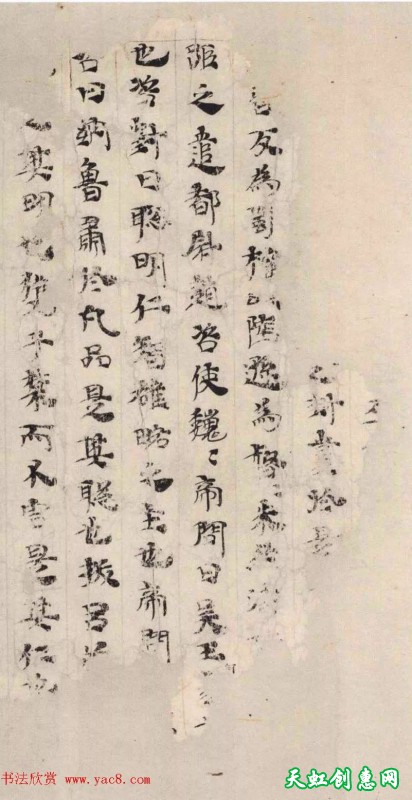 反為蜀權以陸遜為督〻朱然潘
距之遣都尉趙咨使魏〻帝問曰吳王
也咨對曰聰明仁智雄略之主也帝問
咨曰納魯肅於凡品是其聰也拔呂
其明也獲于禁而不害是其仁也
书法欣赏 www.yac8.com
天虹创惠网